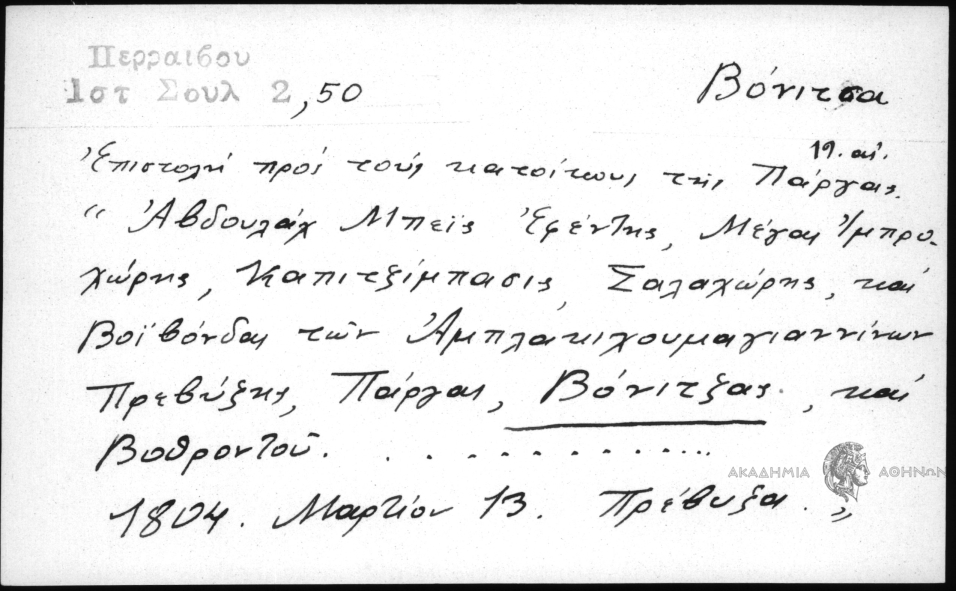 Περραιβου
Ιστ Σουλ 2,50
Βόνιτσα
19. αἰ.
Ἐπιστολή πρός τούς κατοίκους τῆς Πάργας.
“ Ἀβδουλάχ Μπεϊς Ἐφέντης, Μέγας Ἰμπρο-
χώρης, Καπιτζίμπασις, Σαλαχώρης, καί
Βοϊβόνδας τῶν Ἀμπλακιχουμαγιαννίνων
Πρεβύζης, Πάργας, Βόνιτζας, καί
Βοθροντοῦ. . . . . . . . . . . . .
1804. Μαρτίου 13. Πρέβυζα. ”
ΑΚΑΔΗΜΙΑ ΑΘΗΝΩΝ